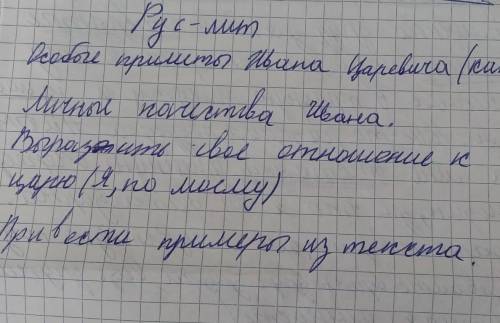 Рус-лит
Особые приметы Ивана Царевича (как
Личные качества Ивана.
Выразить своё отношение к
царю (Я, по моему)
Привести примеры из текста.